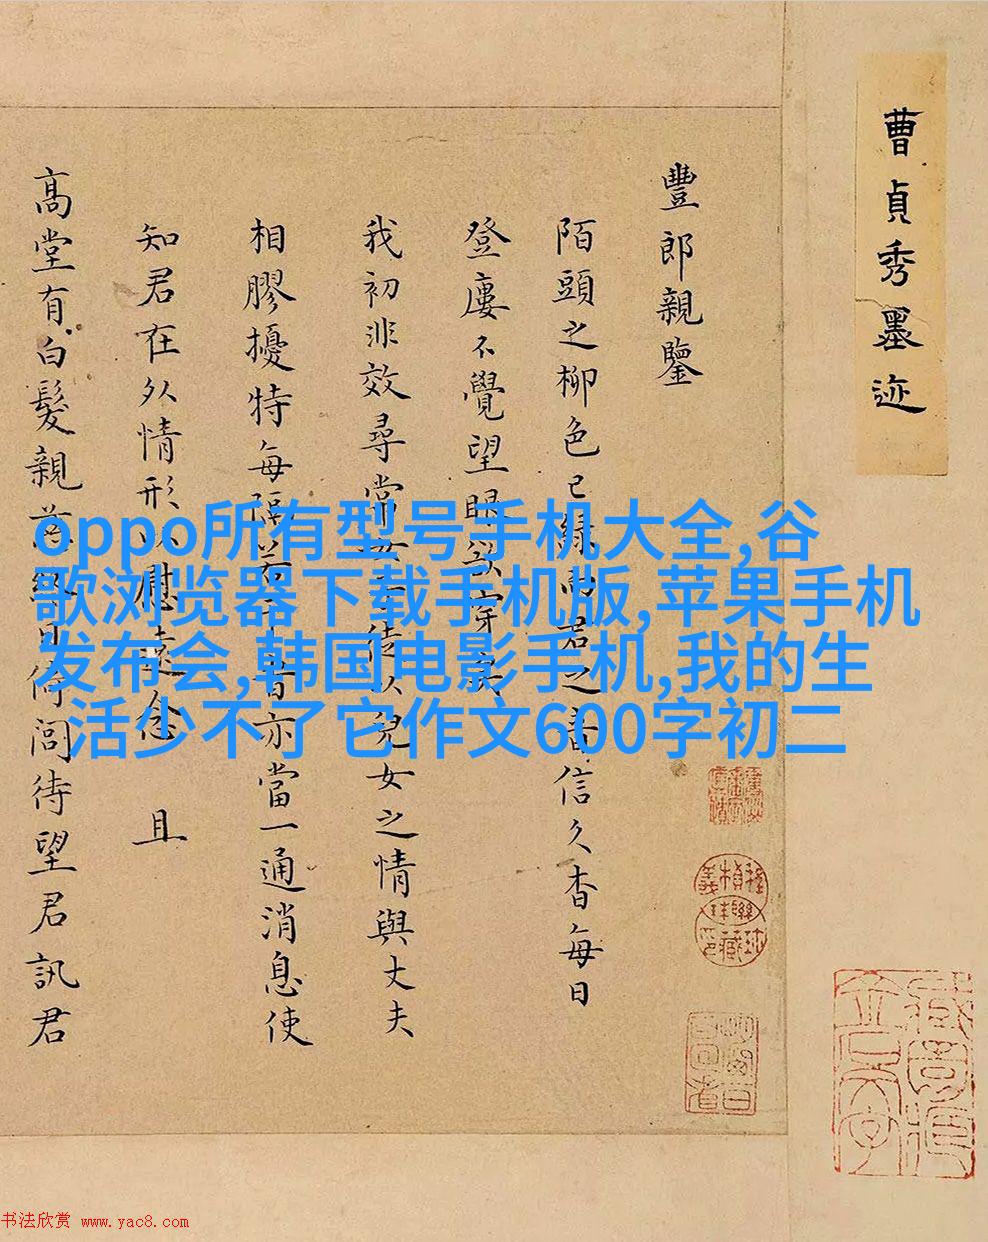 曹貞秀墨迹
豐郎親鑒
陌頭之柳色已綠而君之音信久杳每日
登廔不覺望眼欲穿
我初非效尋常
徒以兒女之情與丈夫
相膠擾特每隔
書亦當一通消息使
知君在外情形以慰遠念 且
高堂有白髮親
倚閭待望君訊君
oppo所有型号手机大全,谷
歌浏览器下载手机版,苹果手机
发布会,韩国电影手机,我的生
活少不了它作文600字初二
书法欣赏 www.yac8.com